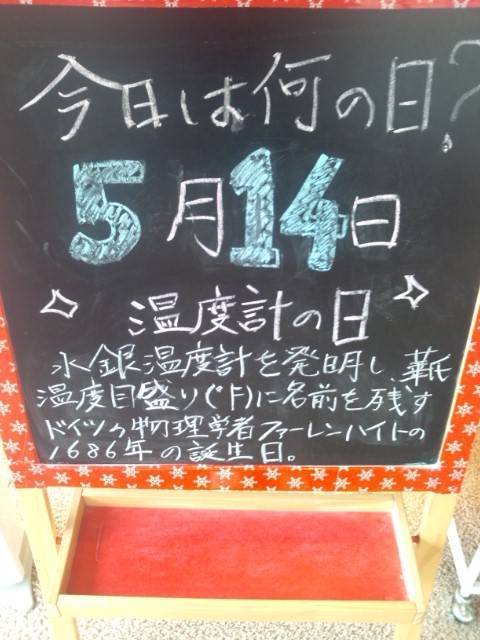 今日は何の日?
5月14日
温度計の日
水銀温度計を発明し、華氏
温度目盛り(°F)に名前を残す
ドイツの物理学者ファーレンハイトの
1686年の誕生日。